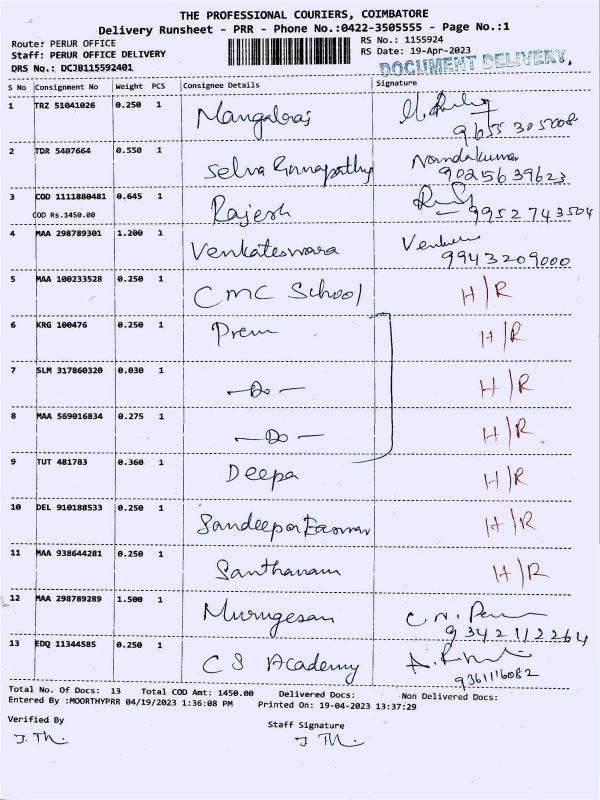 THE PROFESSIONAL COURIERS, COIMBATORE
Delivery Runsheet - PRR - Phone No.:0422-3505555 - Page No.:1
Route: PERUR OFFICE RS No.: 1155924
Staff: PERUR OFFICE DELIVERY RS Date: 19-Apr-2023
DRS No.: DCJB115592401 DOCUMENT DELIVERY,
S No Consignment No Weight PCS Consignee Details Signature
1 TRZ 51041026 0.250 1 Mangalraj
9655305008
2 TDR 5407664 0.550 1 Selva Ganapathy Nandakumar
9025639623
3 COD 1111880481 0.645 1 Rajesh
COD Rs.1450.00 9952743504
4 MAA 298789301 1.200 1 Venkateswara
9943209000
5 MAA 100233528 0.250 1 CMC School H/R
6 KRG 100476 0.250 1 Prem H/R
7 SLM 317860320 0.030 1 —Do— H/R
8 MAA 569016834 0.275 1 —Do— H/R
9 TUT 481783 0.360 1 Deepa H/R
10 DEL 910188533 0.250 1 H/R
11 MAA 938644281 0.250 1 Santhanam H/R
12 MAA 298789289 1.500 1 Murugesan
9342112264
13 EDQ 11344585 0.250 1 CS Academy
9361116082
Total No. Of Docs: 13 Total COD Amt: 1450.00 Delivered Docs: Non Delivered Docs:
Entered By :MOORTHYPRR 04/19/2023 1:36:08 PM Printed On: 19-04-2023 13:37:29
Verified By Staff Signature